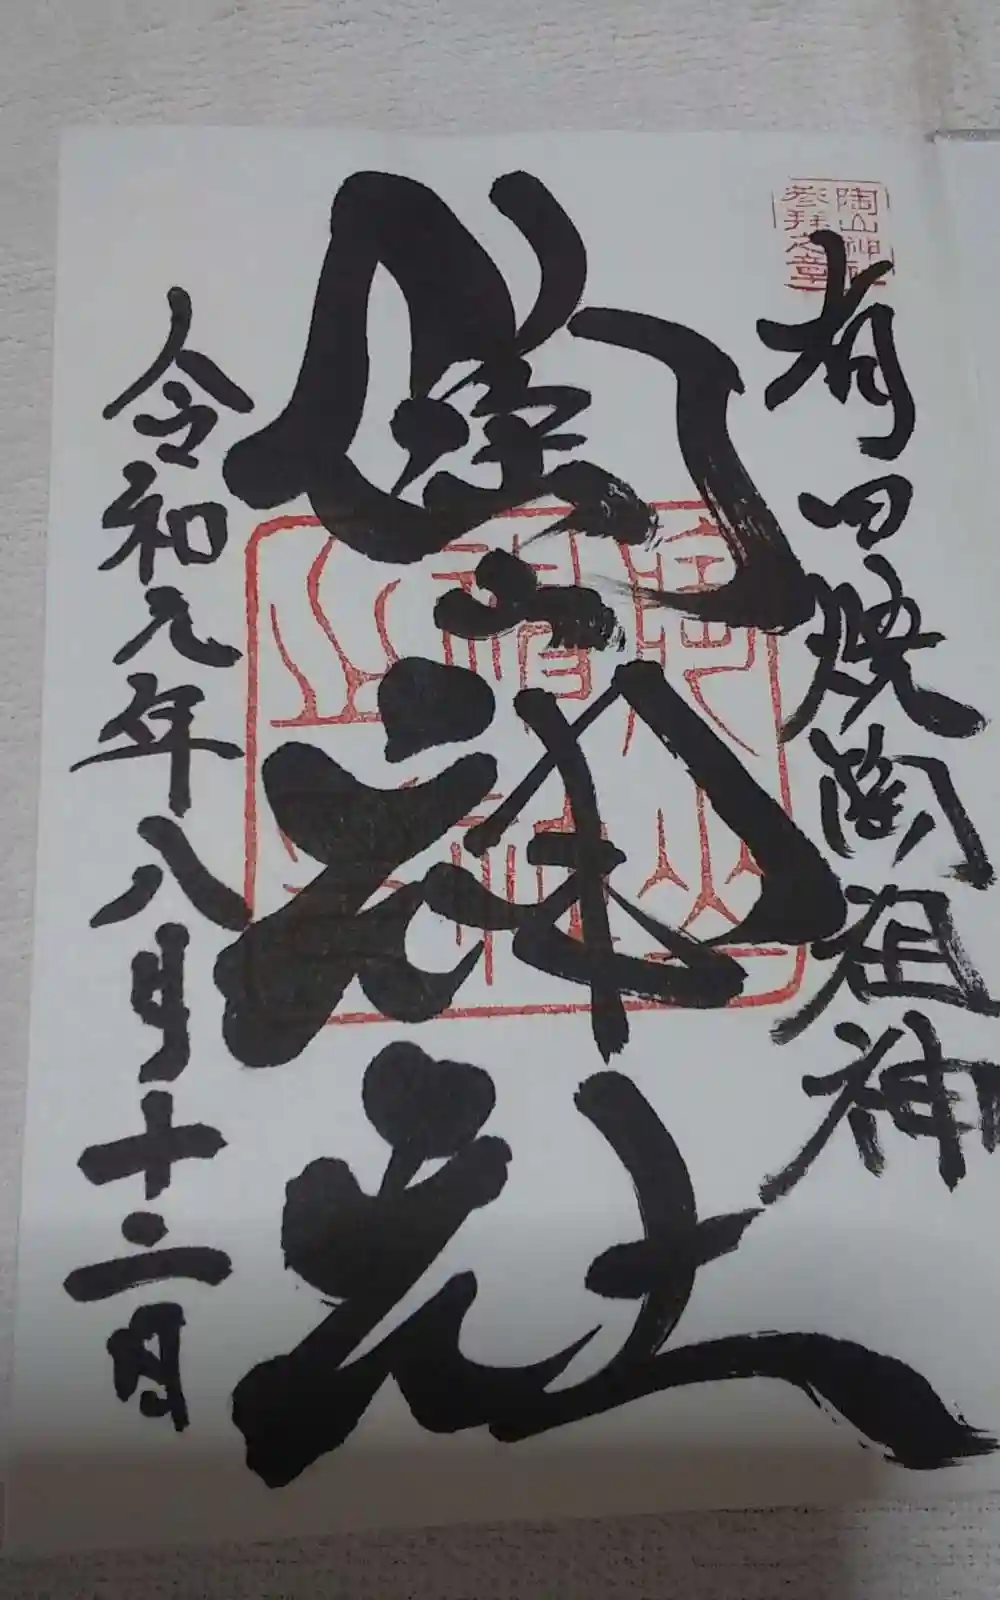 陶山神社
参拝之章
有田焼陶祖神
陶山神社
令和元年八月十二日